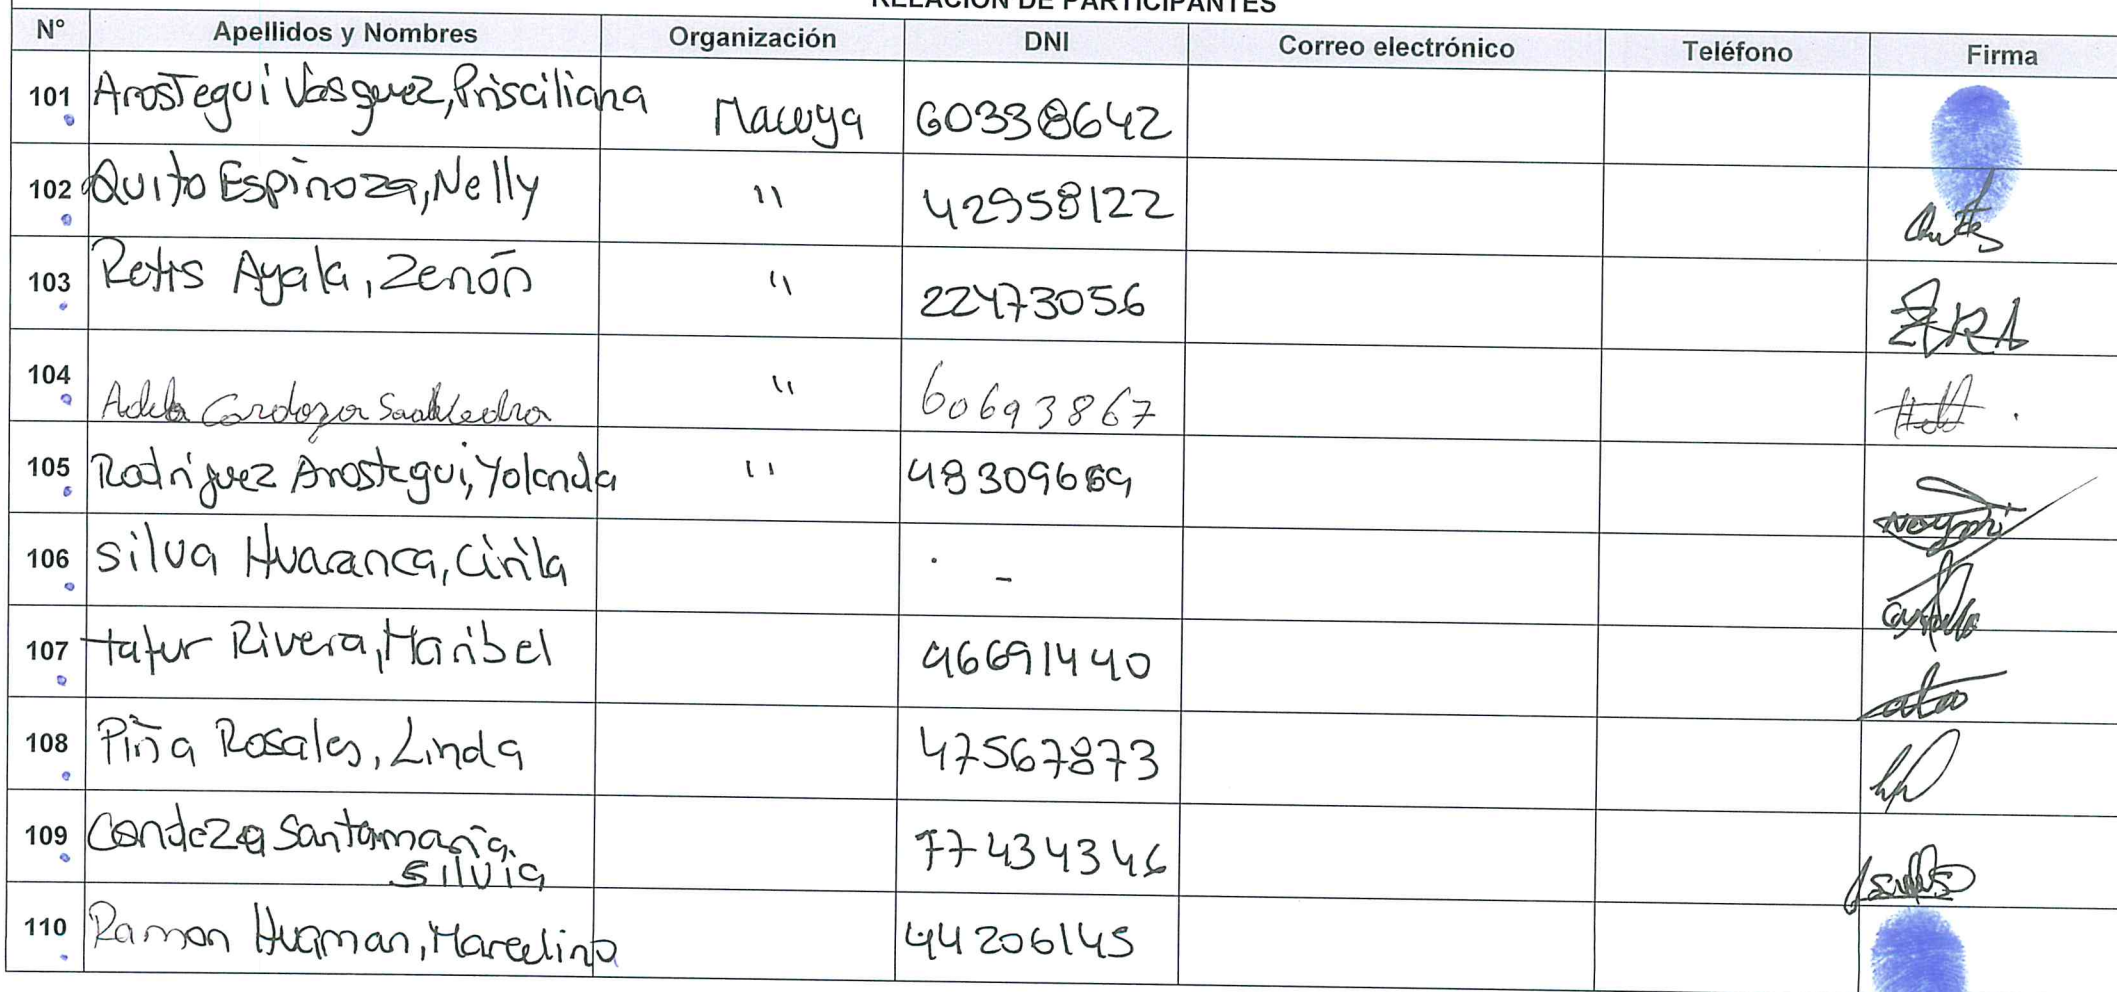 RELACIÓN DE PARTICIPANTES
N° Apellidos y Nombres Organización DNI Correo electrónico Teléfono Firma
101 Arostegui Vasquez, Prisciliana Macuya 60338642
102 Quito Espinoza, Nelly " 42958122
103 Retis Ayala, Zenón " 22473056
104 Adela Cardozo Saavedra " 60693867
105 Rodriguez Arostegui, Yolanda " 48309669
106 Silva Huaranca, Cirila -
107 tafur Rivera, Maribel 46691440
108 Piña Rosales, Linda 47567873
109 Condeza Santamaria, Silvia 77434346
110 Ramon Huaman, Marcelino 44206145